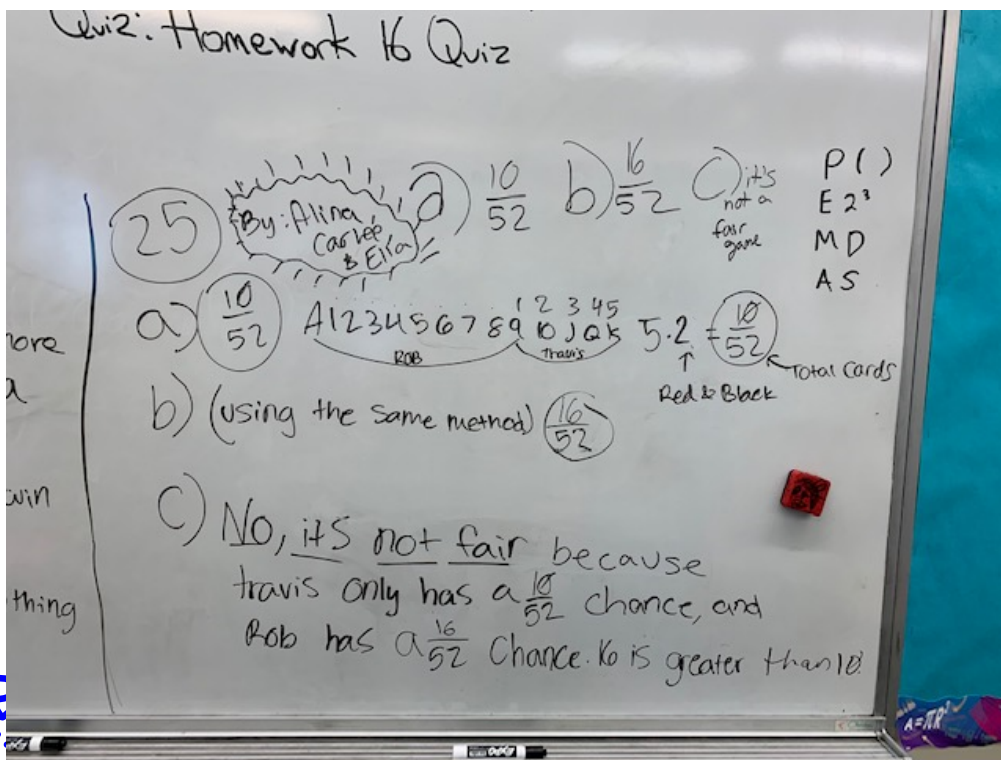 Quiz: Homework 16 Quiz
25
By: Alina,
Carlee
& Ella
a) 10/52 b) 16/52 c) it's
not a
fair
game
P ( )
E 2³
M D
A S
ore
a
win
thing
1 2 3 4 5
a) 10/52 A 1 2 3 4 5 6 7 8 9 10 J Q K 5 · 2 = 10/52
Rob Travis
Red & Black
Total Cards
b) (using the same method) 16/52
c) No, its not fair because
travis only has a 10/52 chance, and
Rob has a 16/52 Chance. 16 is greater than 10.
A=πR²
EXPO